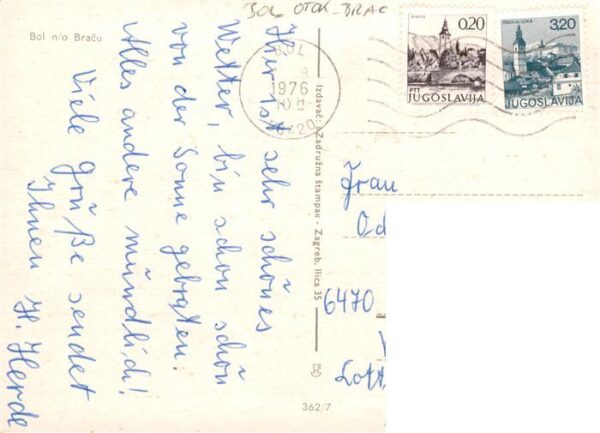 BOL OTOK-BRAC
Bol n/o Braču
BOL
1976
10 H
58420
0.20
PTT
JUGOSLAVIJA
ŠKOFJA LOKA
3.20
JUGOSLAVIJA
Hier ist sehr schönes
Wetter, bin schon schön
von der Sonne gebraten.
Alles andere mündlich!
Viele Grüße sendet
Ihnen H. Herde
Izdavač: »Zadružna štampa« - Zagreb, Ilica 35
362/7
Frau
6470